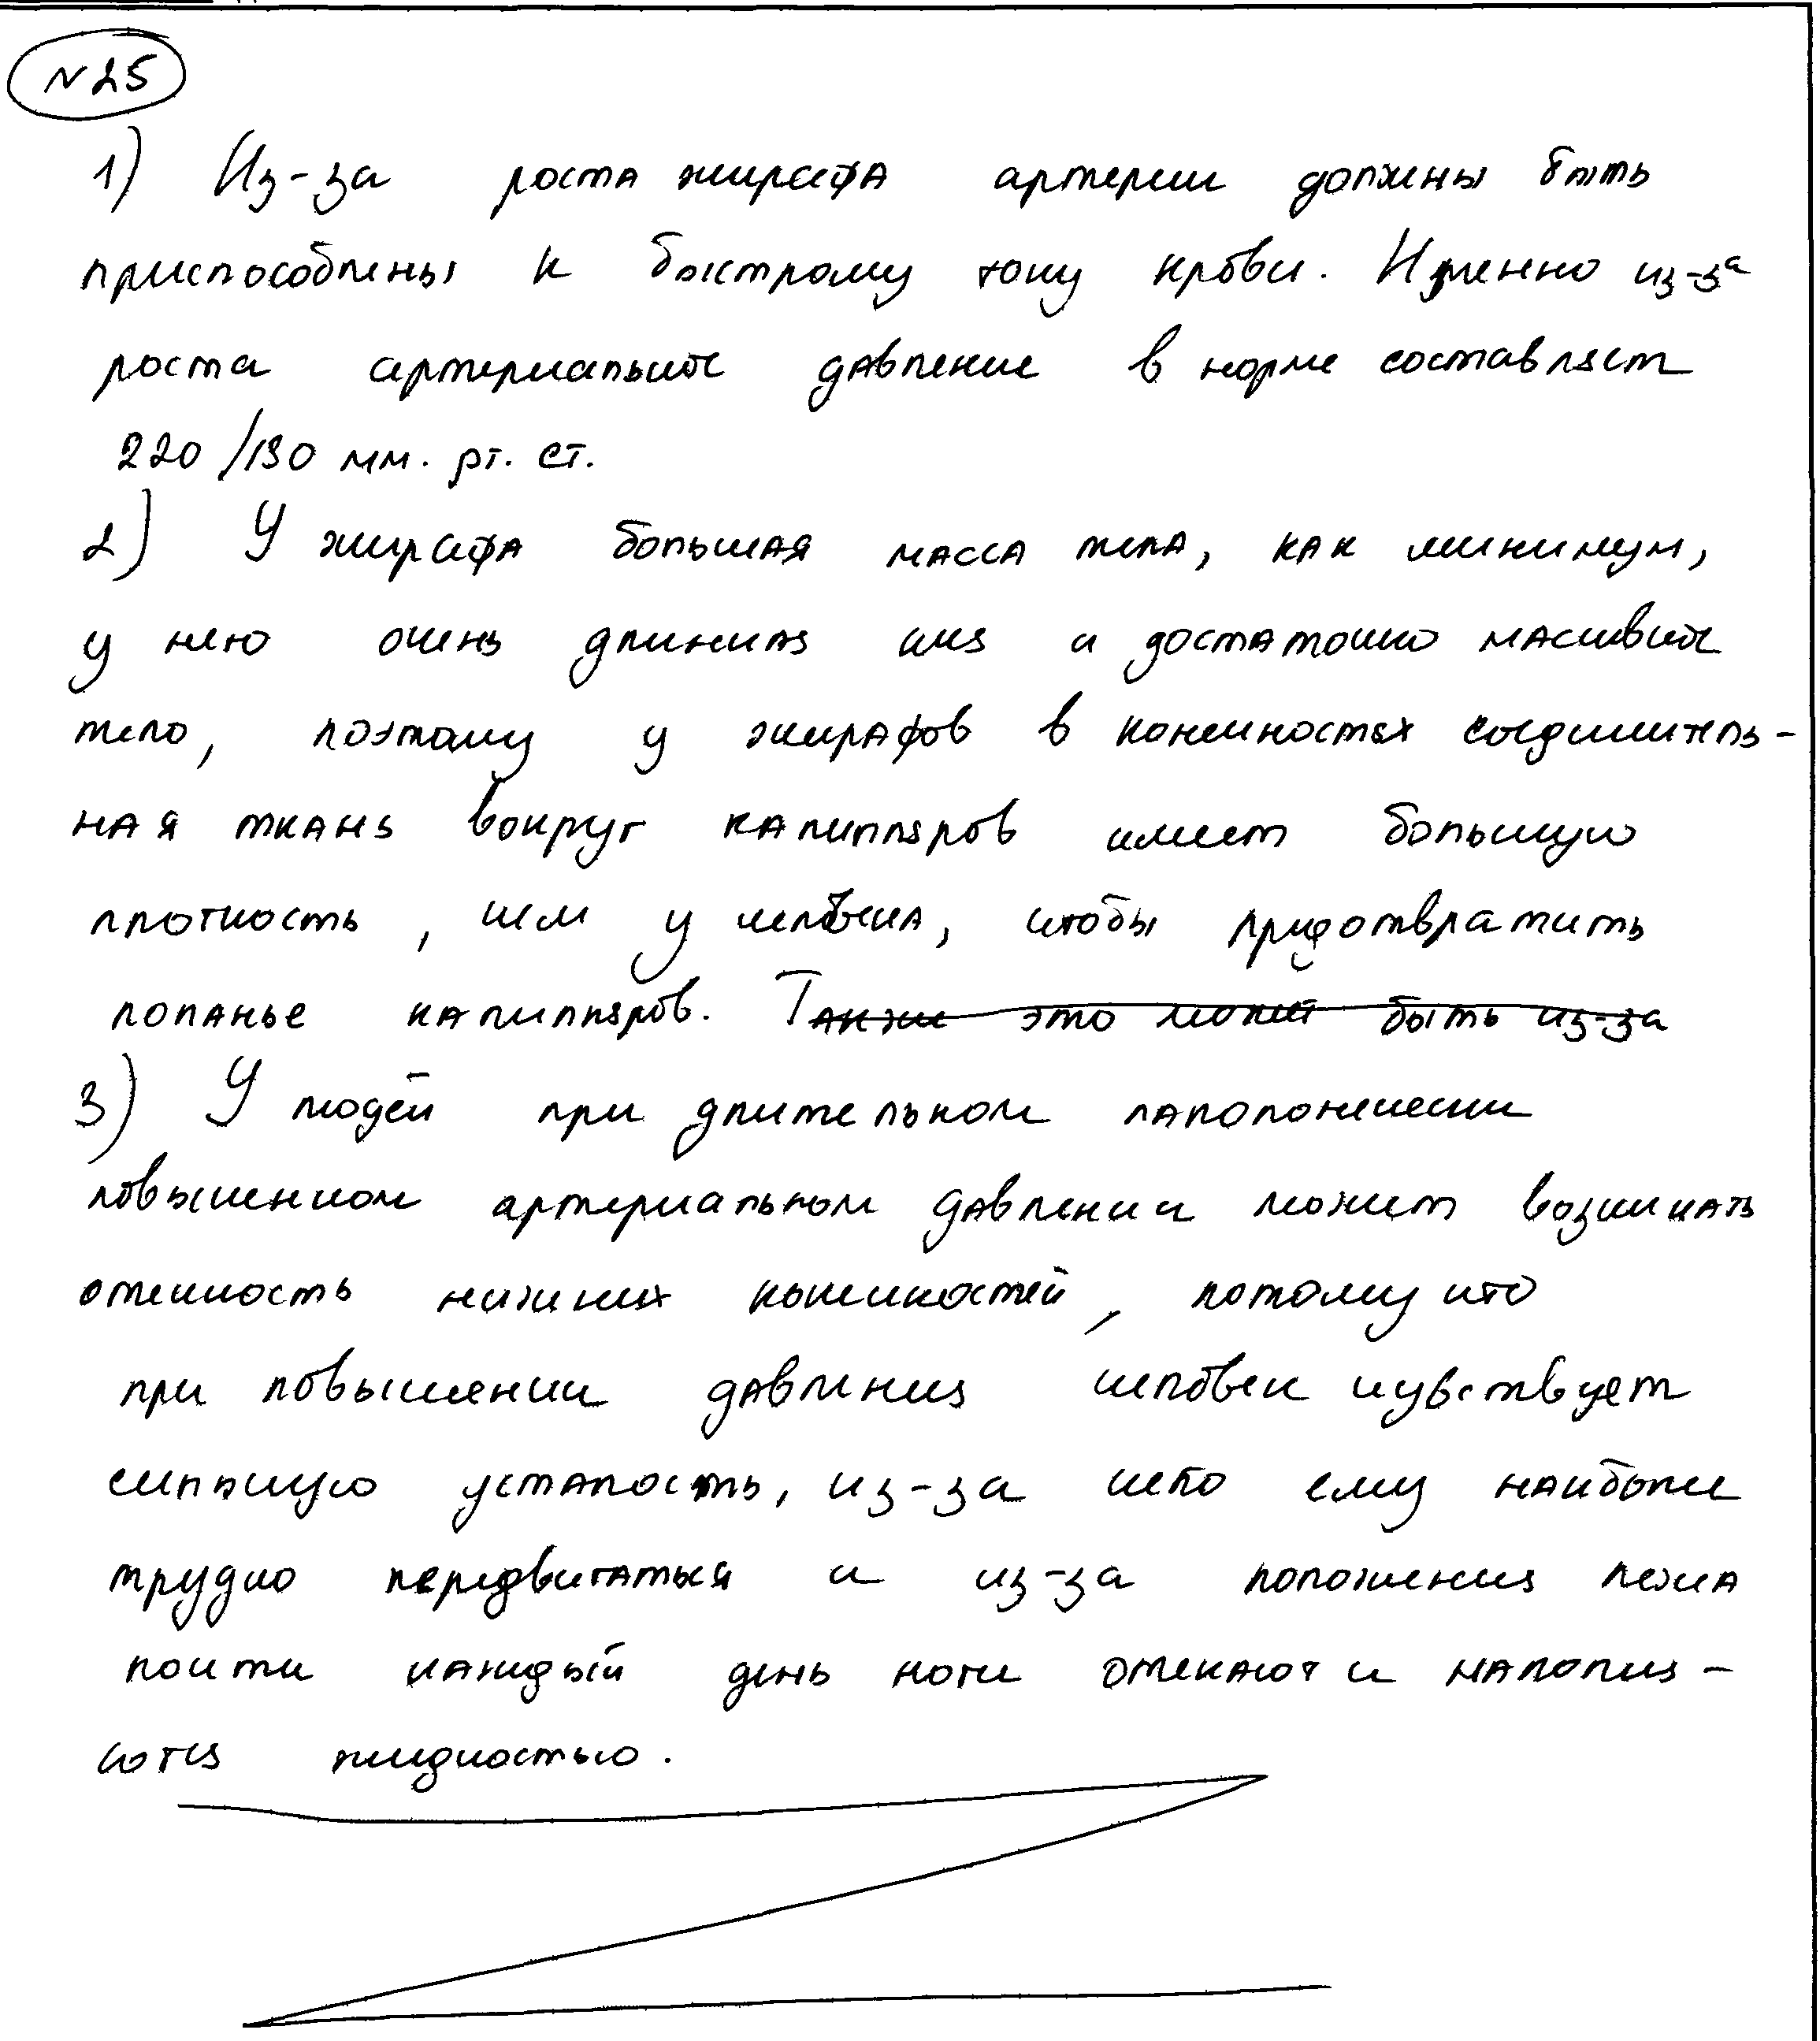 №25
1) Из-за роста жирафа артерии должны быть
приспособлены к быстрому току крови. Именно из-за
роста артериальное давление в норме составляет
220/180 мм. рт. ст.
2) У жирафа большая масса тела, как минимум,
у него очень длинная шея и достаточно массивное
тело, поэтому у жирафов в конечностях соединитель-
ная ткань вокруг капилляров имеет большую
плотность, чем у человека, чтобы предотвратить
лопанье капилляров. Также это может быть из-за
3) У людей при длительном
повышенном артериальном давлении может возникать
отечность нижних конечностей, потому что
при повышении давления человек чувствует
сильную усталость, из-за чего ему наиболее
трудно передвигаться и из-за положения лежа
почти каждый день ноги отекают и наполня-
ются жидкостью.